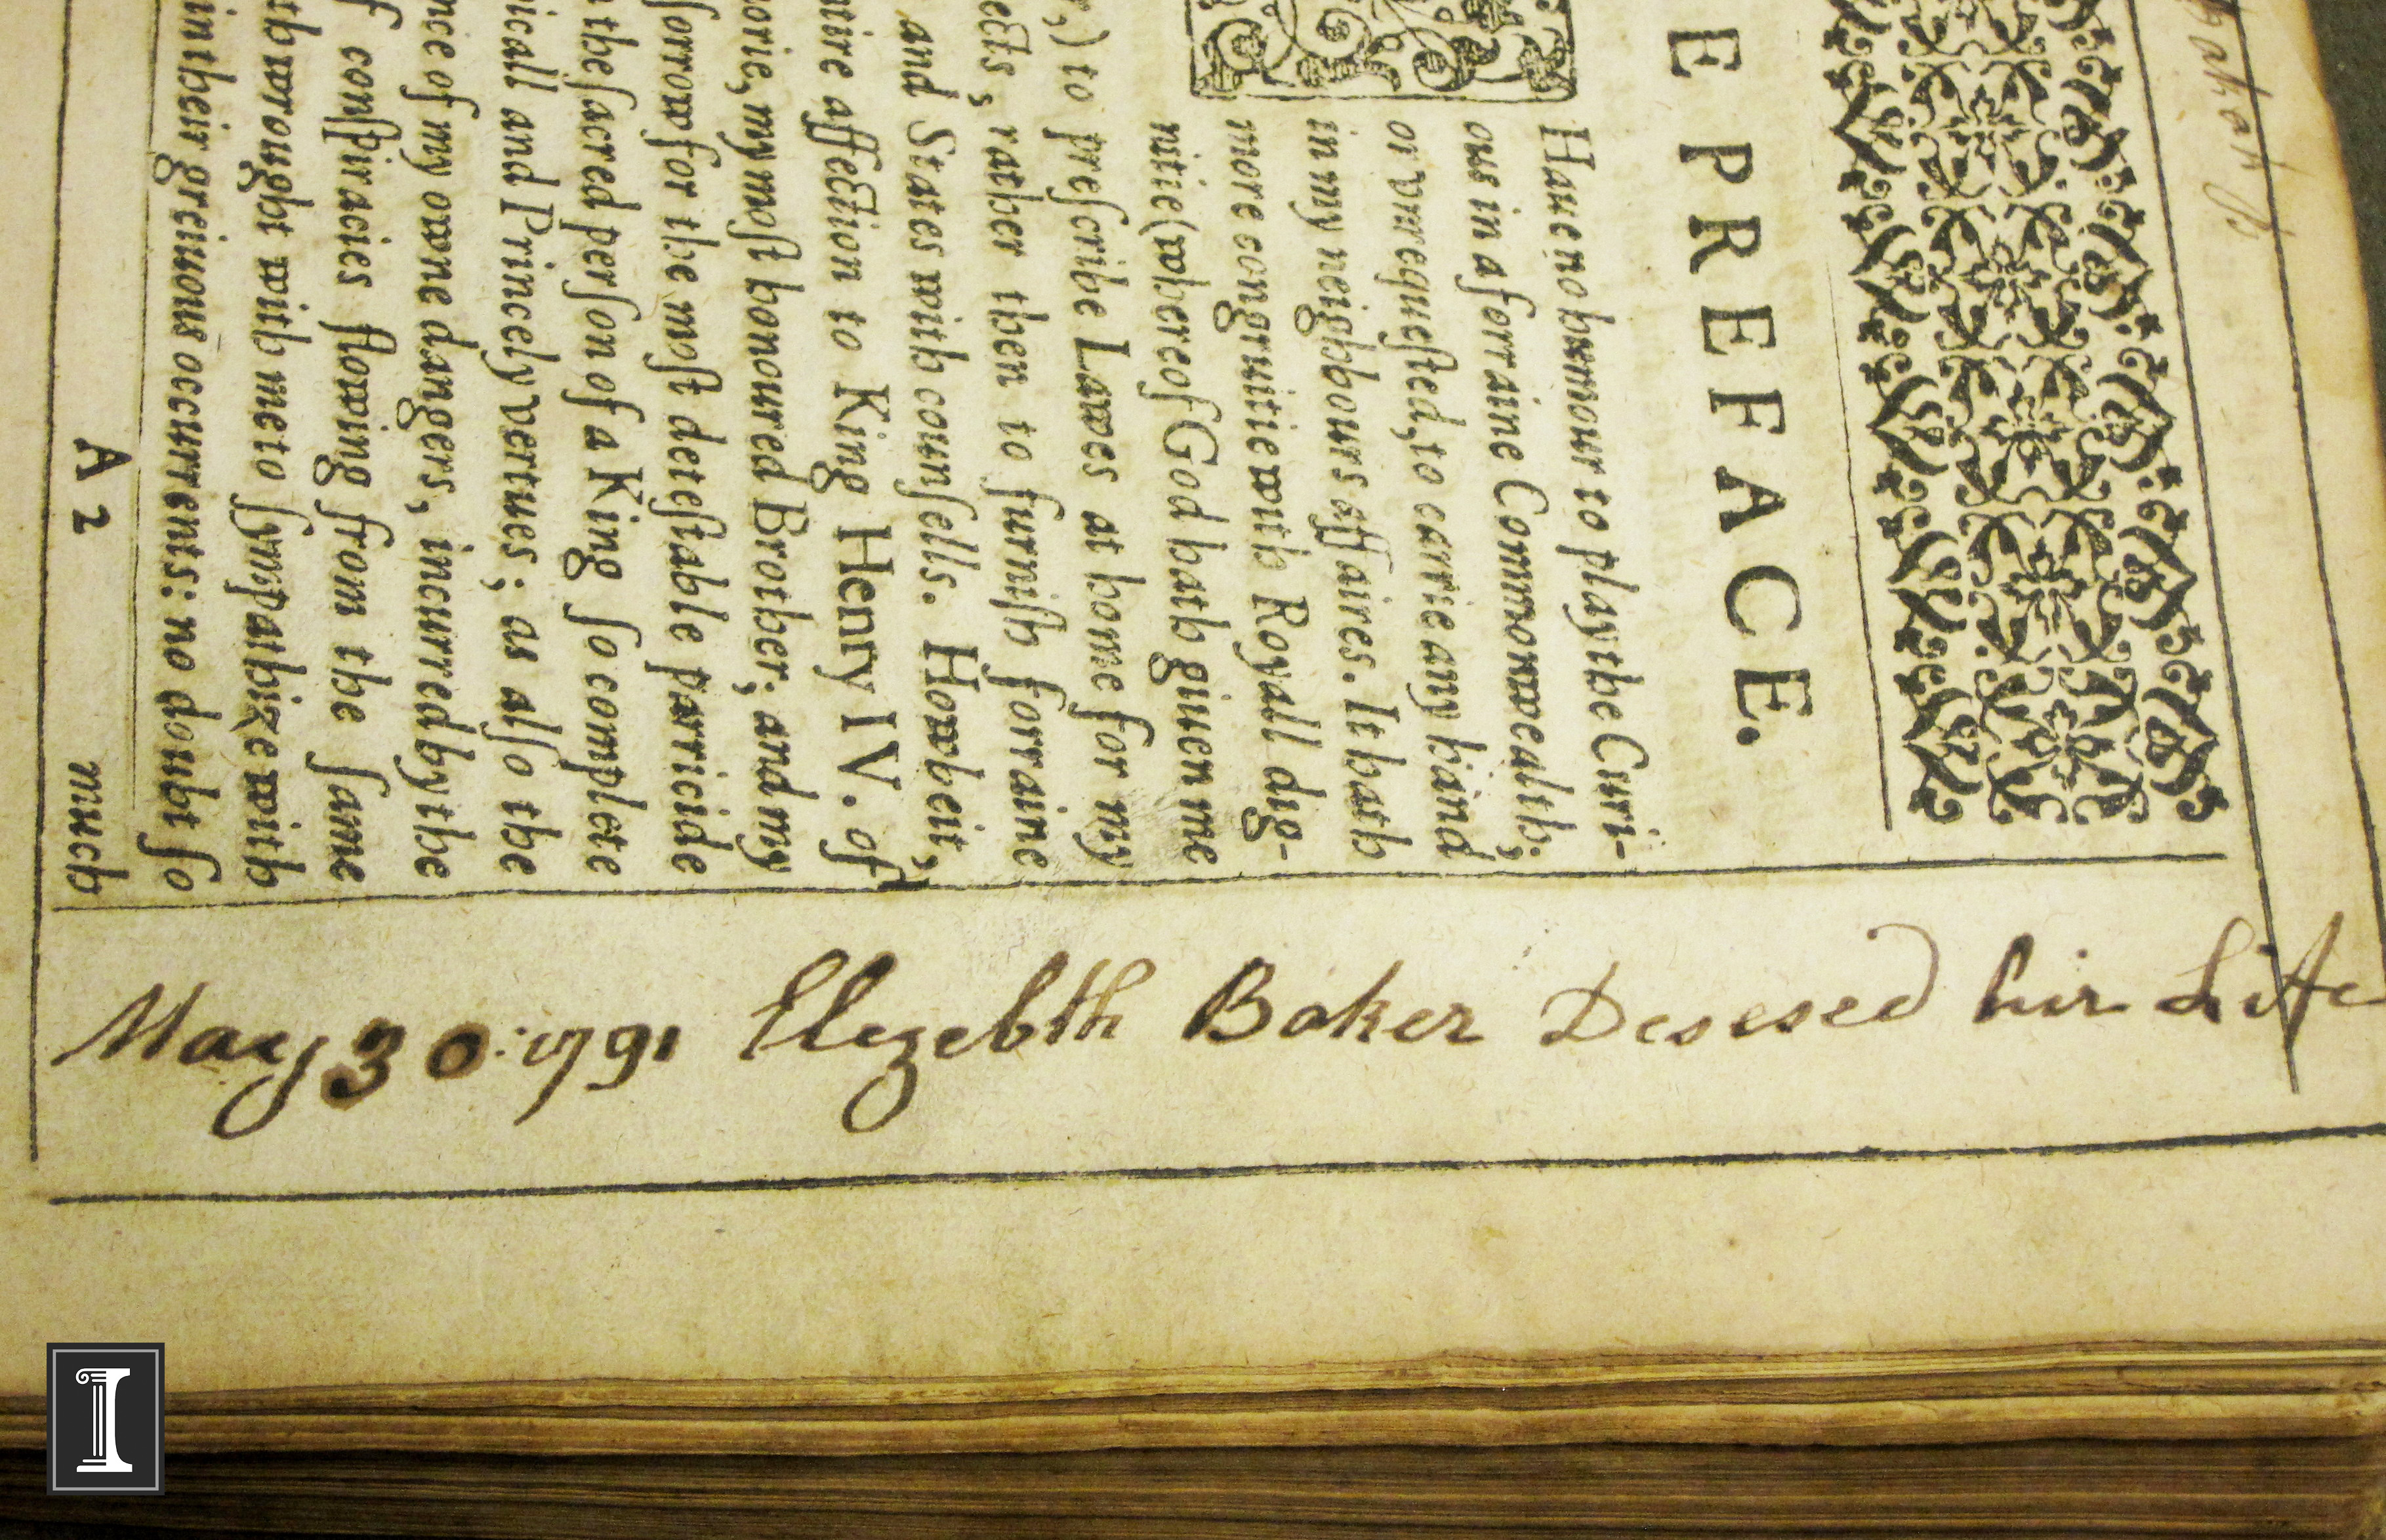 E PREFACE.
Haue no humour to play the Curi-
ous in a forraine Commonwealth;
or vnrequested, to carrie any hand
in my neighbours affaires. It hath
more congruitie with Royall dig-
nitie (whereof God hath giuen me
,) to preſcribe Lawes at home for my
ects, rather then to furniſh forraine
and States with counſells. Howbeit,
tire affection to King Henry IV. of
orie, my moſt honoured Brother; and my
ſorrow for the moſt deteſtable parricide
the ſacred perſon of a King ſo complete
icall and Princely vertues; as alſo the
nce of my owne dangers, incurred by the
f conſpiracies flowing from the ſame
th wrought with me to ſympathize with
in their greiuous occurrents: no doubt ſo
A 2 much
May 30: 1791 Elezebth Baker Desesed hir Life
I